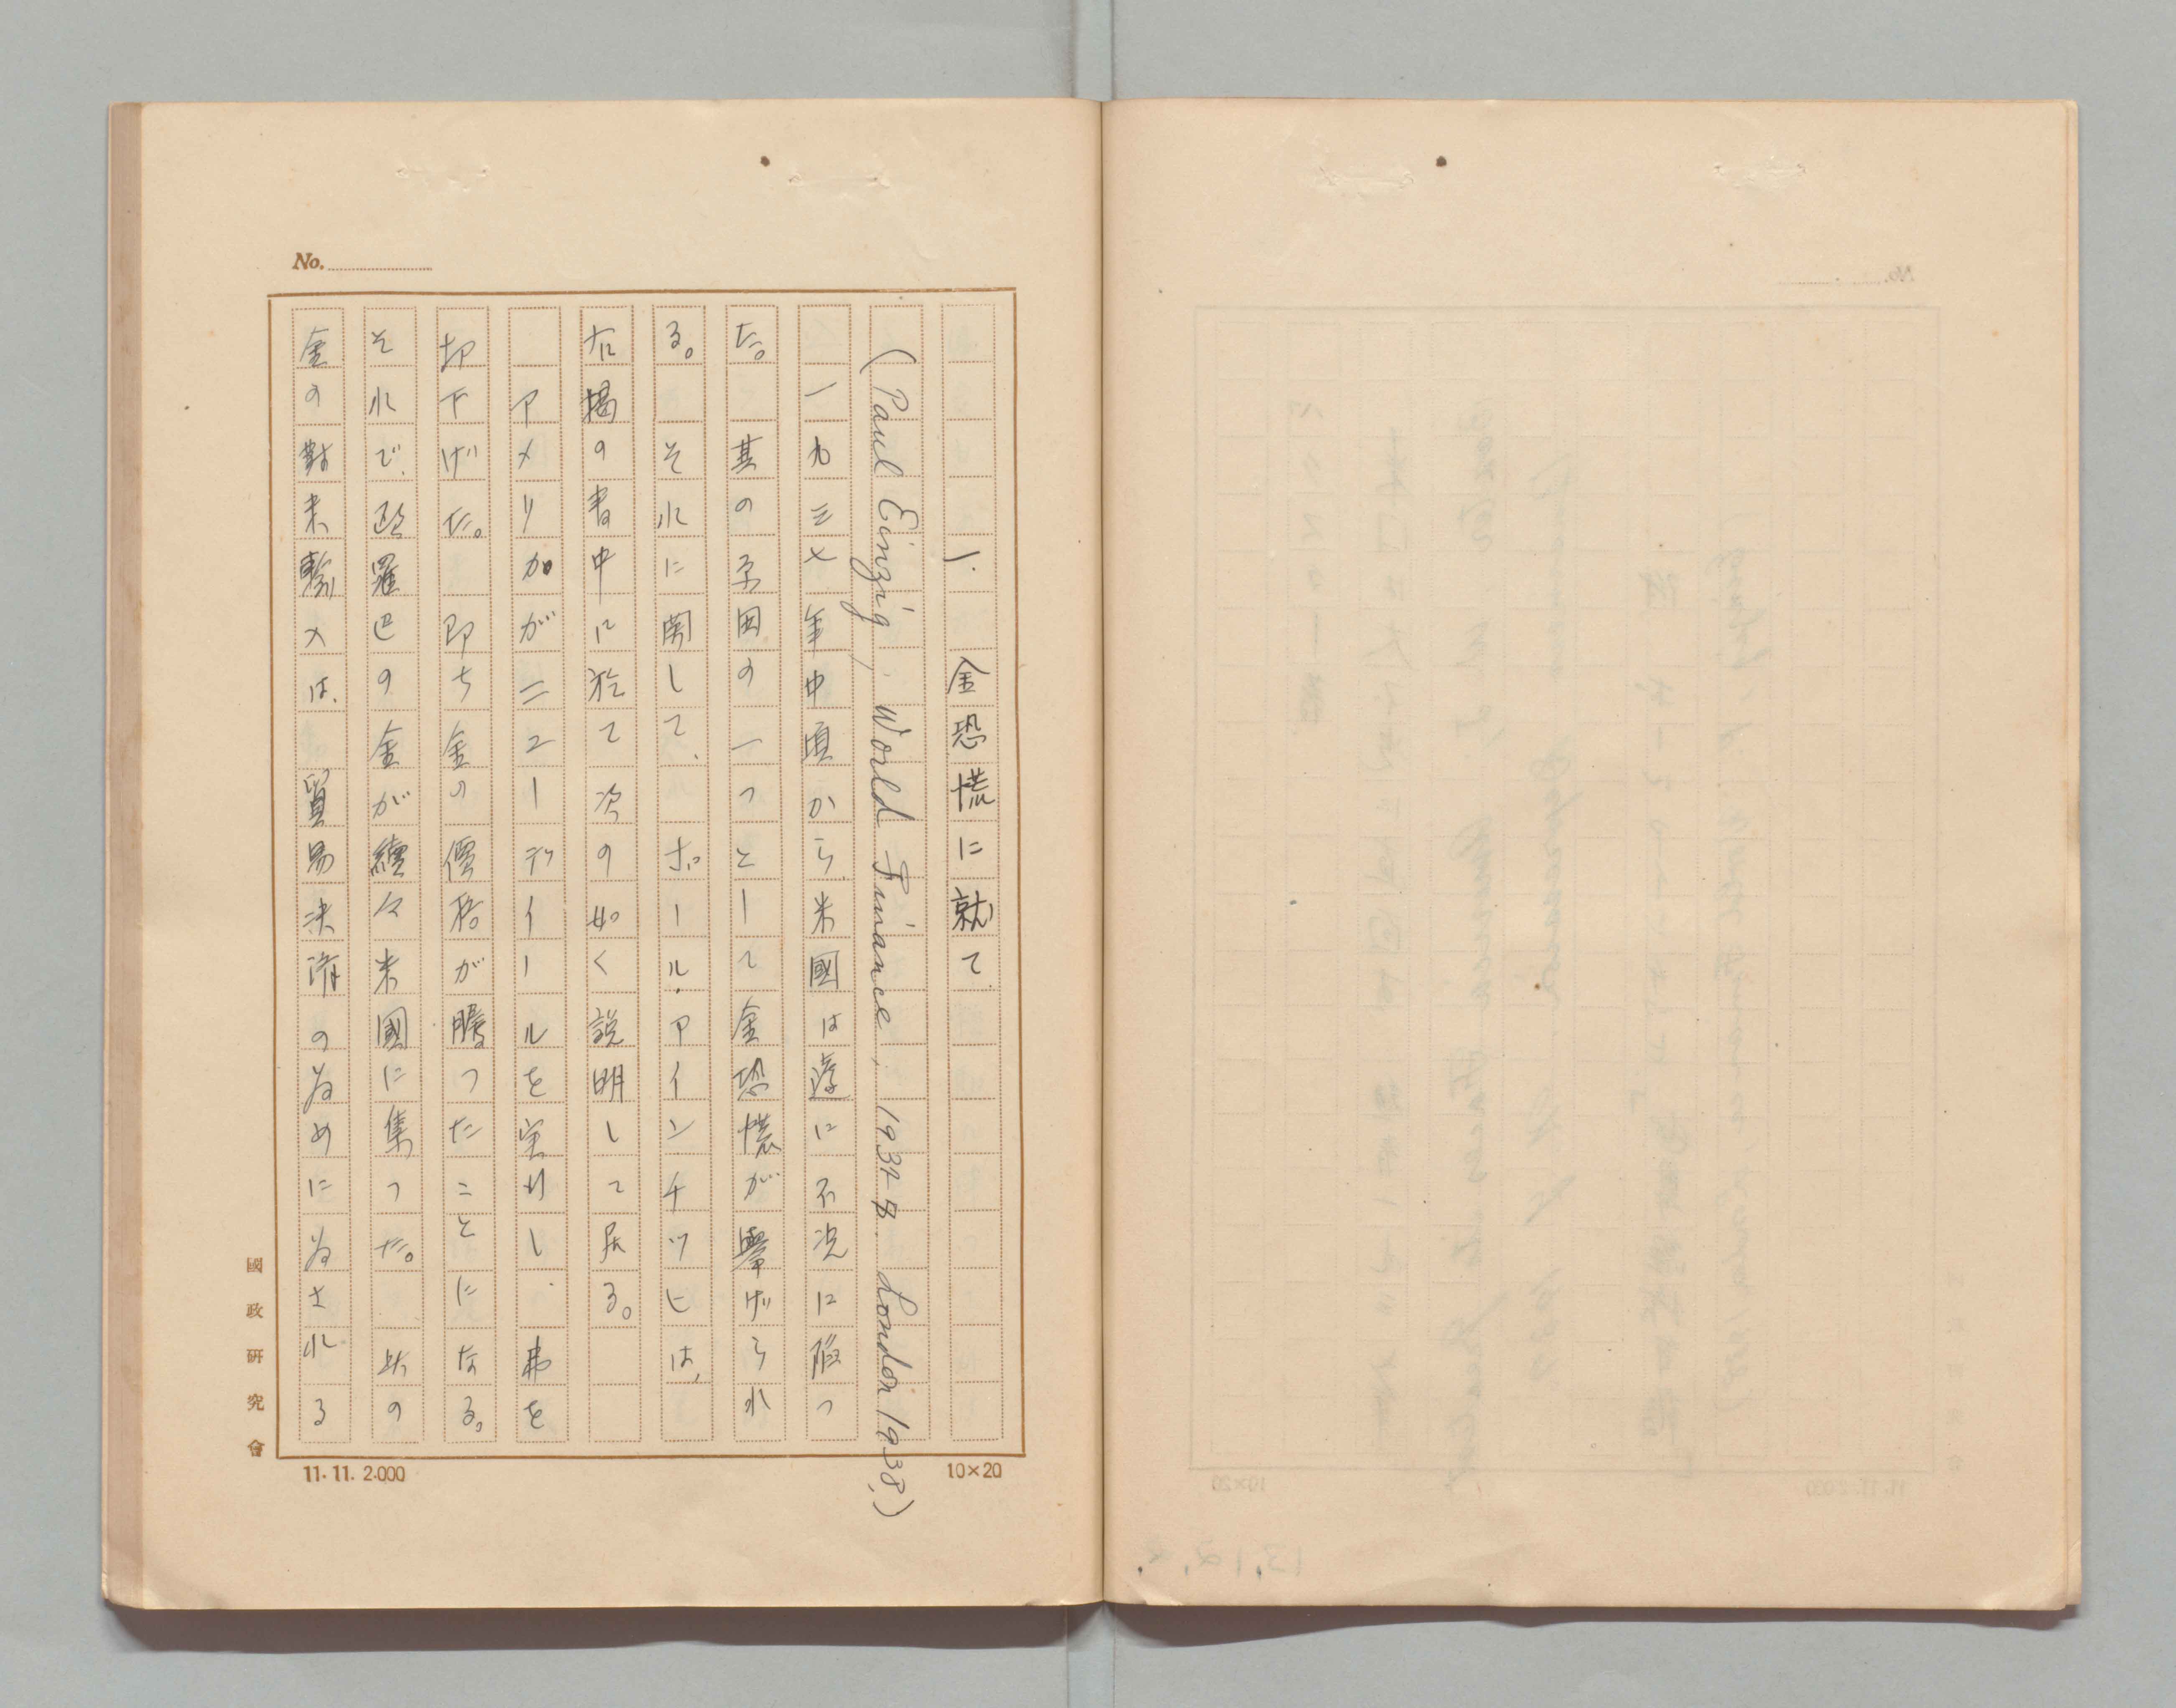 No.
一. 金恐慌に就て.
(Paul Einzig, World Finance, 1937-8. London 1938.)
一九三七年中頃から、米國は遂に不況に陥つ
た。 其の原因の一つとして金恐慌が擧げられ
る。 それに関して、 ポール・アインチッヒは、
右掲の書中に於て次の如く説明して居る。
アメリカがニューディールを実行し、弗を
切下げた。 即ち金の價格が騰つたことになる。
それで、歐羅巴の金が續々米國に集つた。 此の
金の對米輸入は、 貿易決済の為めに為される
國政研究會
11.11. 2.000
10×20